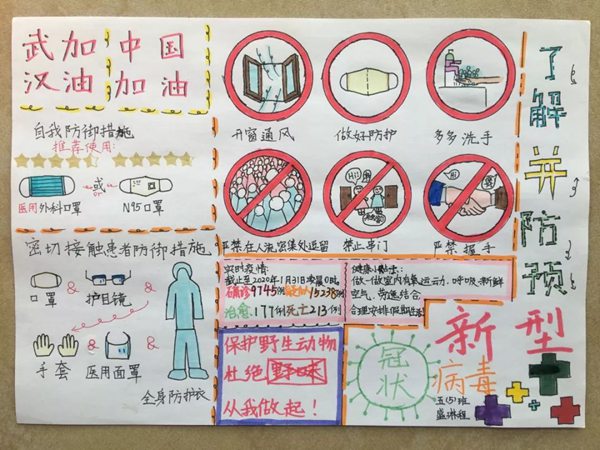 武汉加油
中国加油
自我防御措施
推荐使用:
医用外科口罩
或
or
N95口罩
密切接触患者防御措施
口罩
&
护目镜
&
手套
&
医用面罩
&
全身防护衣
开窗通风
做好防护
多多洗手
严禁在人流密集处逗留
Hi!
禁止串门
严禁握手
实时疫情:
截止至2020年1月31日零晨0时
确诊9745例疑似15238例
治愈:177例死亡213例
健康小贴士:
做一做室内有氧运动,呼吸新鲜
空气,劳逸结合
合理安排假期生活
保护野生动物
杜绝野味
从我做起!
了解并预防
新型
冠状
病毒
五(5)班
盛琳程